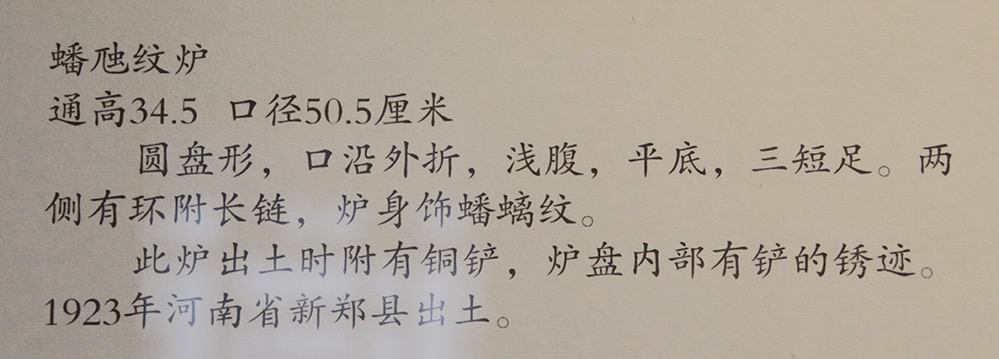 蟠虺纹炉
通高34.5 口径50.5厘米
圆盘形，口沿外折，浅腹，平底，三短足。两
侧有环附长链，炉身饰蟠螭纹。
此炉出土时附有铜铲，炉盘内部有铲的锈迹。
1923年河南省新郑县出土。